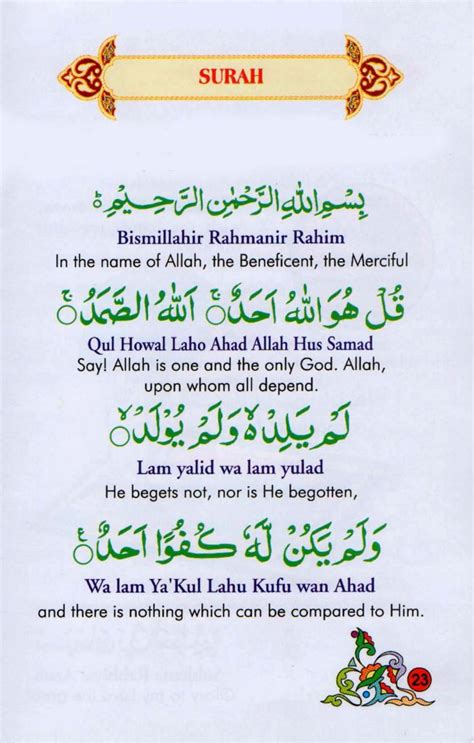 SURAH
بِسْمِ اللهِ الرَّحْمٰنِ الرَّحِيْمِ
Bismillahir Rahmanir Rahim
In the name of Allah, the Beneficent, the Merciful
قُلْ هُوَ اللهُ اَحَدٌ ۚ اَللهُ الصَّمَدُ ۚ
Qul Howal Laho Ahad Allah Hus Samad
Say! Allah is one and the only God. Allah,
upon whom all depend.
لَمْ يَلِدْ ۙ وَلَمْ يُوْلَدْ ۙ
Lam yalid wa lam yulad
He begets not, nor is He begotten,
وَلَمْ يَكُنْ لَّهٗ كُفُوًا اَحَدٌ ۚ
Wa lam Ya'Kul Lahu Kufu wan Ahad
and there is nothing which can be compared to Him.
23